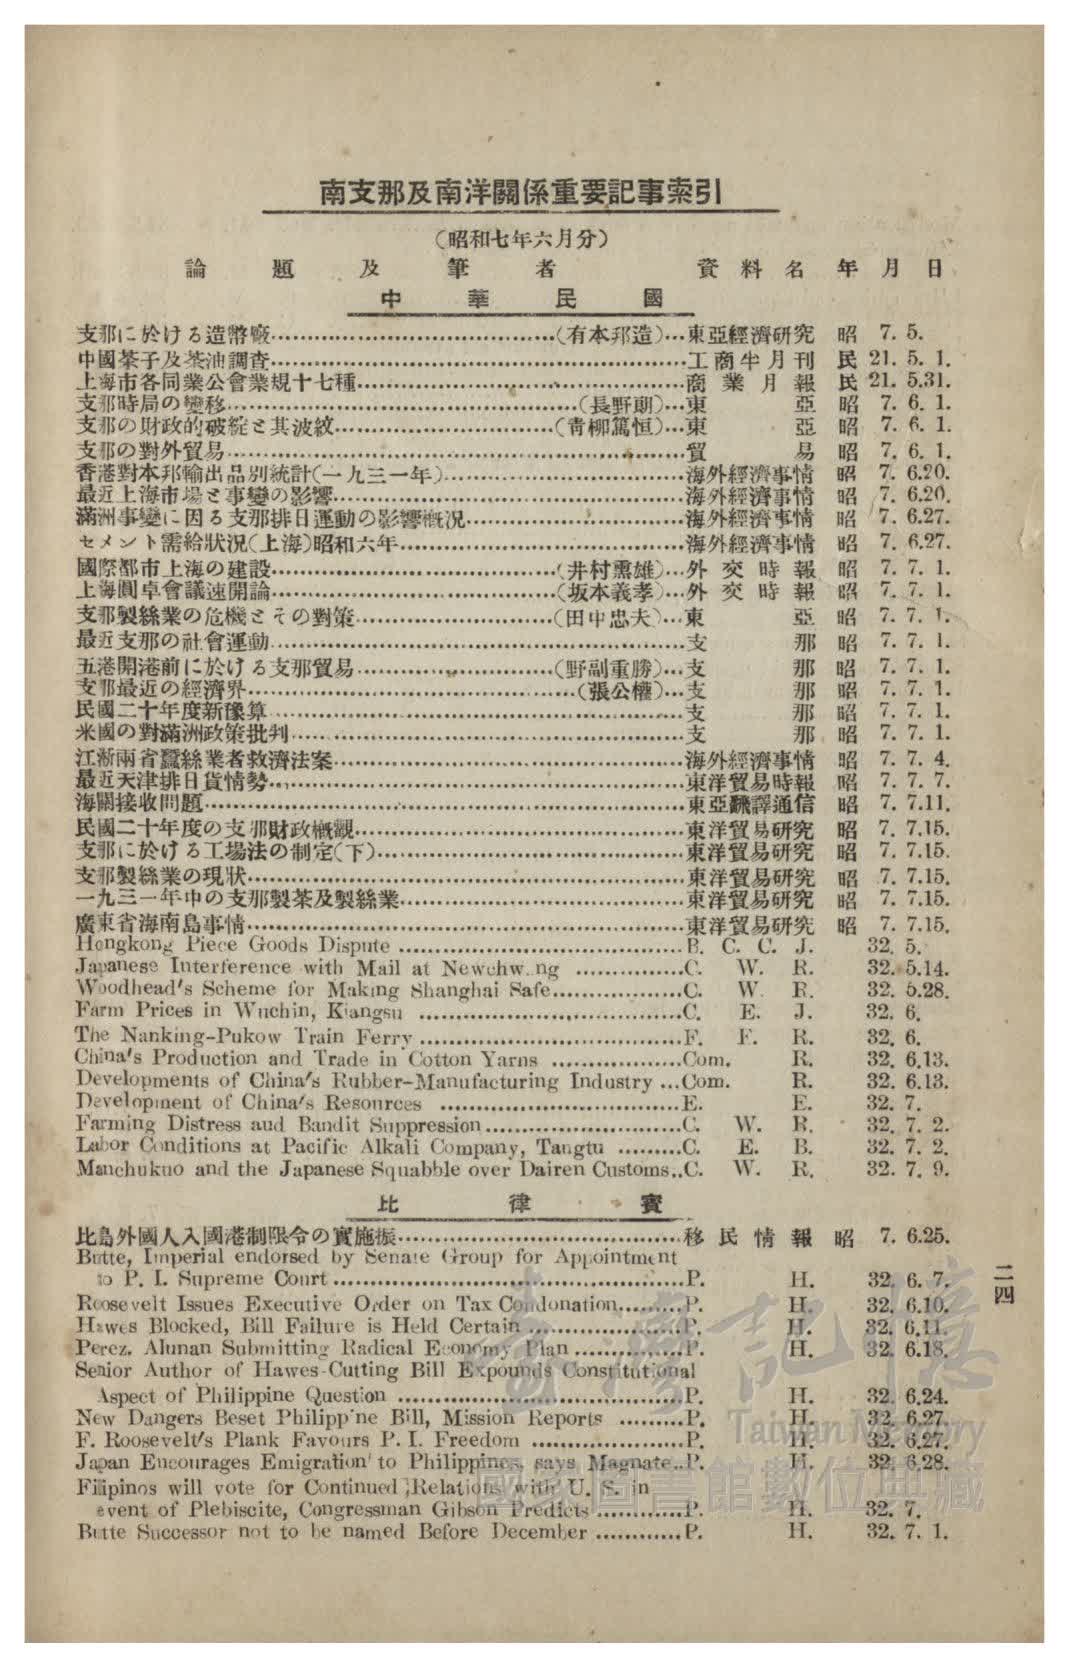 南支那及南洋關係重要記事索引
(昭和七年六月分)
論題及筆者 資料名 年月日
中華民國
支那に於ける造幣廠……(有本邦造)…東亞經濟研究 昭 7. 5.
中國茶子及茶油調査……工商半月刊 民 21. 5. 1.
上海市各同業公會業規十七種……商業月報 民 21. 5.31.
支那時局の變移……(長野朗)…東亞 昭 7. 6. 1.
支那の財政的破綻と其波紋……(靑柳篤恒)…東亞 昭 7. 6. 1.
支那の對外貿易……貿易 昭 7. 6. 1.
香港對本邦輸出品別統計(一九三一年)……海外經濟事情 昭 7. 6.20.
最近上海市場と事變の影響……海外經濟事情 昭 7. 6.20.
滿洲事變に因る支那排日運動の影響槪況……海外經濟事情 昭 7. 6.27.
セメント需給狀況(上海)昭和六年……海外經濟事情 昭 7. 6.27.
國際都市上海の建設……(井村熏雄)…外交時報 昭 7. 7. 1.
上海圓卓會議速開論……(坂本義孝)…外交時報 昭 7. 7. 1.
支那製絲業の危機とその對策……(田中忠夫)…東亞 昭 7. 7. 1.
最近支那の社會運動……支那 昭 7. 7. 1.
五港開港前に於ける支那貿易……(野副重勝)…支那 昭 7. 7. 1.
支那最近の經濟界……(張公權)…支那 昭 7. 7. 1.
民國二十年度新豫算……支那 昭 7. 7. 1.
米國の對滿洲政策批判……支那 昭 7. 7. 1.
江浙兩省蠶絲業者救濟法案……海外經濟事情 昭 7. 7. 4.
最近天津排日貨情勢……東洋貿易時報 昭 7. 7. 7.
海關接收問題……東亞飜譯通信 昭 7. 7.11.
民國二十年度の支那財政槪觀……東洋貿易研究 昭 7. 7.15.
支那に於ける工場法の制定(下)……東洋貿易研究 昭 7. 7.15.
支那製絲業の現狀……東洋貿易研究 昭 7. 7.15.
一九三一年中の支那製茶及製絲業……東洋貿易研究 昭 7. 7.15.
廣東省海南島事情……東洋貿易研究 昭 7. 7.15.
Hongkong Piece Goods Dispute ……B. C. C. J. 32. 5.
Japanese Interference with Mail at Newchw ng ……C. W. R. 32. 5.14.
Woodhead's Scheme for Making Shanghai Safe……C. W. R. 32. 5.28.
Farm Prices in Wuchin, Kiangsu ……C. E. J. 32. 6.
The Nanking-Pukow Train Ferry……F. E. R. 32. 6.
China's Production and Trade in Cotton Yarns ……Com. R. 32. 6.13.
Developments of China's Rubber-Manufacturing Industry …Com. R. 32. 6.13.
Development of China's Resources ……E. E. 32. 7.
Farming Distress and Bandit Suppression……C. W. R. 32. 7. 2.
Labor Conditions at Pacific Alkali Company, Tangtu ……C. E. B. 32. 7. 2.
Manchukuo and the Japanese Squabble over Dairen Customs..C. W. R. 32. 7. 9.
比律賓
比島外國人入國港制限令の實施振……移民情報 昭 7. 6.25.
Butte, Imperial endorsed by Senate Group for Appointment
to P. I. Supreme Court……P. H. 32. 6. 7.
Roosevelt Issues Executive Order on Tax Condonation……P. H. 32. 6.10.
Hawes Blocked, Bill Failure is Held Certain ……P. H. 32. 6.11.
Perez, Alunan Submitting Radical Economy Plan……P. H. 32. 6.18.
Senior Author of Hawes-Cutting Bill Expounds Constitutional
Aspect of Philippine Question ……P. H. 32. 6.24.
New Dangers Beset Philipp'ne Bill, Mission Reports ……P. H. 32. 6.27.
F. Roosevelt's Plank Favours P. I. Freedom ……P. H. 32. 6.27.
Japan Encourages Emigration to Philippines, says Magnate..P. H. 32. 6.28.
Filipinos will vote for Continued Relations with U. S. in
event of Plebiscite, Congressman Gibson Predicts……P. H. 32. 7.
Butte Successor not to be named Before December ……P. H. 32. 7. 1.
二四
臺灣記憶
Taiwan Memory
國家圖書館數位典藏